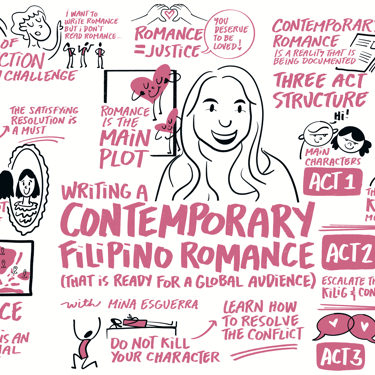 OF
CTION
CHALLENGE
I WANT TO
WRITE ROMANCE
BUT I DON'T
READ ROMANCE...
ROMANCE
=JUSTICE
YOU
DESERVE
TO BE
LOVED!
CONTEMPORARY
ROMANCE
IS A REALITY THAT IS
BEING DOCUMENTED
THREE ACT
STRUCTURE
THE SATISFYING
RESOLUTION IS
A MUST
ROMANCE
IS THE
MAIN
PLOT
Hi!
MAIN
CHARACTERS
ACT 1
WRITING A
CONTEMPORARY
FILIPINO ROMANCE
(THAT IS READY FOR A GLOBAL AUDIENCE)
with MINA ESGUERRA
TH
K
MO
ACT 2
ESCALATE TH
KILIG & CON
CE
IS AN
AL
DO NOT KILL
YOUR CHARACTER
LEARN HOW
TO RESOLVE
THE CONFLICT
ACT 3